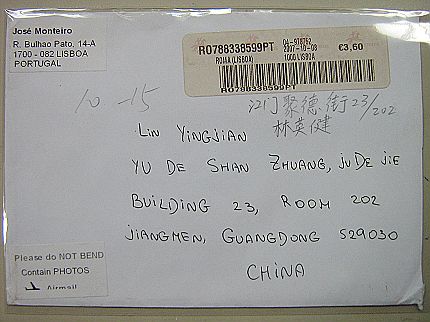 José Monteiro
R. Bulhao Pato, 14-A
1700 - 082 LISBOA
PORTUGAL
RO788338599PT
ROMA (LISBOA)
2007-10-08
1000 LISBOA
€3,60
RO788338599PT
10 -15
江门聚德街23/202
林英健
Lin Yingjian
YU DE SHAN ZHUANG, JuDe Jie
BUILDING 23, ROOM 202
JIANGMEN, GUANGDONG 529030
CHINA
Please do NOT BEND
Contain PHOTOS
Airmail